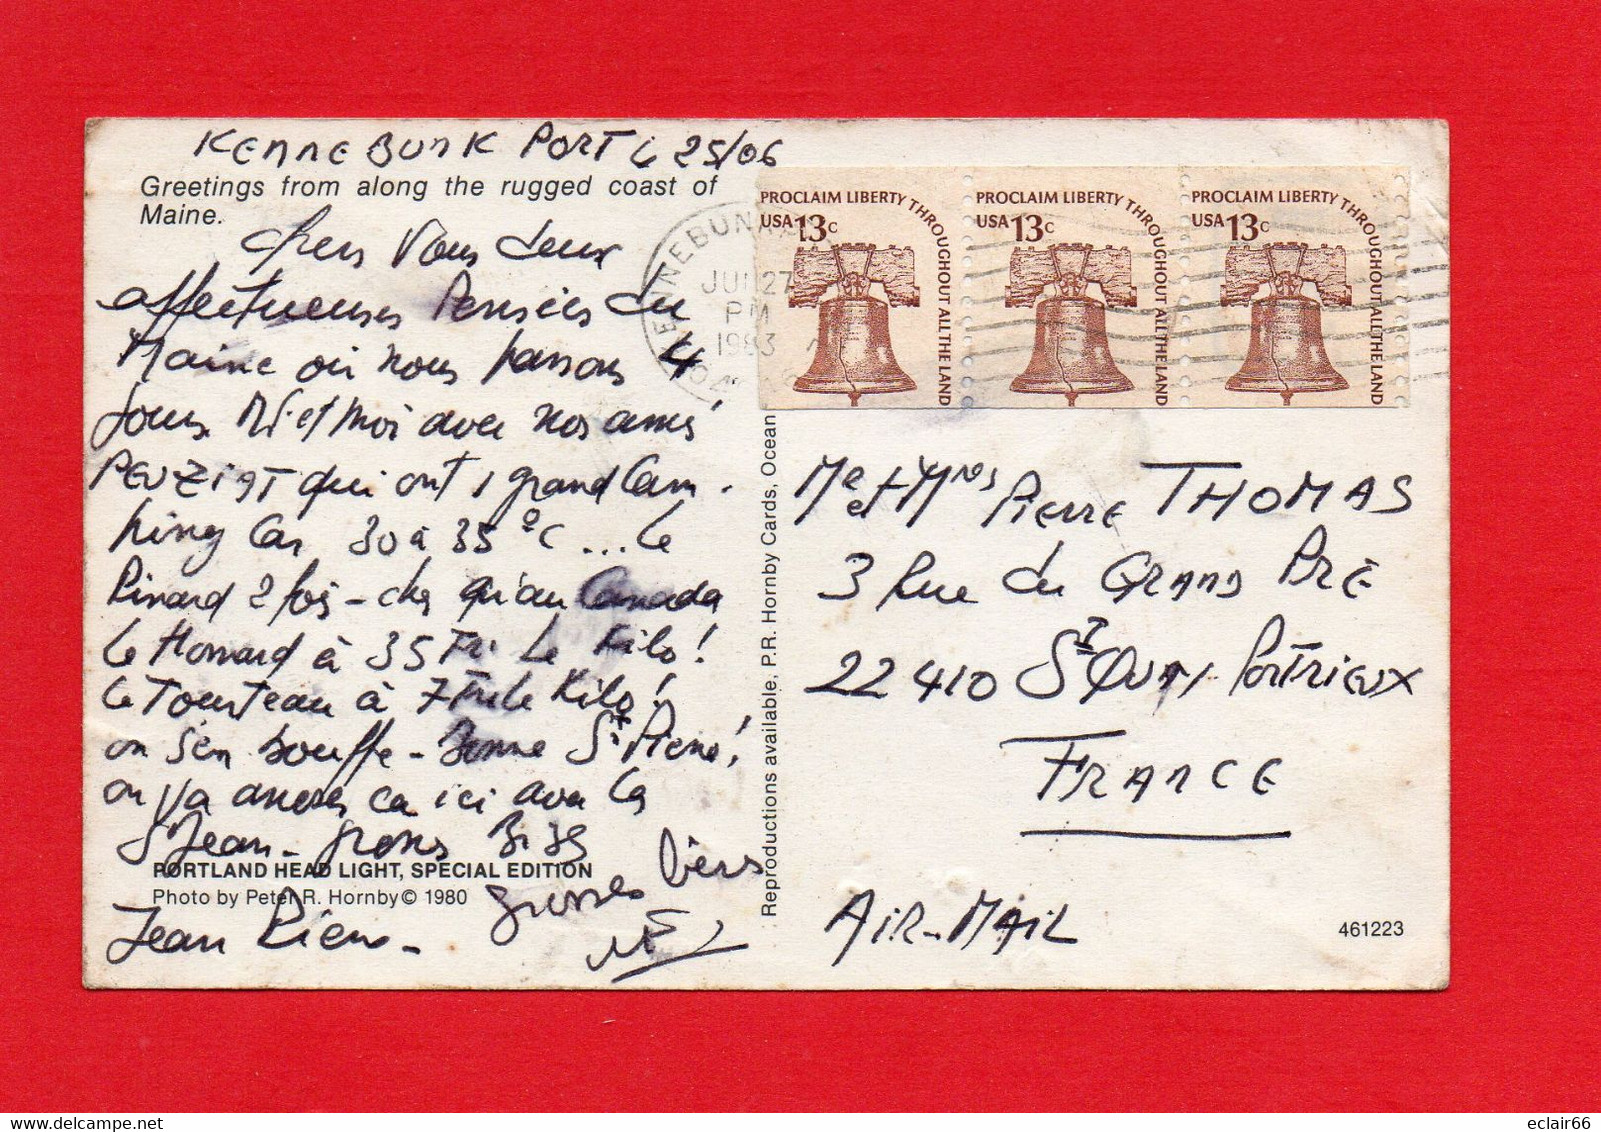 KENNEBUNK PORT le 25/06
Greetings from along the rugged coast of
Maine.
chers Vous deux
affectueuses Pensées du
Maine où nous passons 4
jours Mi et moi avec nos amis
PEUZIAT qui ont 1 grand Cam-
ping Car 30 à 35°C ... le
Pinard 2 fois - cher qu'au Canada
le Homard à 35 Fr le Kilo!
le Tourteau à 7 Fr le Kilo!
on s'en bouffe - Bonne St Pierre!
on va arroser ca ici avec la
St Jean - gross Bises
PORTLAND HEAD LIGHT, SPECIAL EDITION
Photo by Peter R. Hornby © 1980
Jean Pierre -
grosses bises
Reproductions available, P.R. Hornby Cards, Ocean
KENNEBUNK
JUN 27
PM
1983
PROCLAIM LIBERTY THROUGHOUT ALL THE LAND
USA 13c
PROCLAIM LIBERTY THROUGHOUT ALL THE LAND
USA 13c
PROCLAIM LIBERTY THROUGHOUT ALL THE LAND
USA 13c
Me et Mme Pierre THOMAS
3 Rue du GRAND PRÉ
22410 St QUAY PORTRIEUX
FRANCE
AIR-MAIL
461223
eclair66